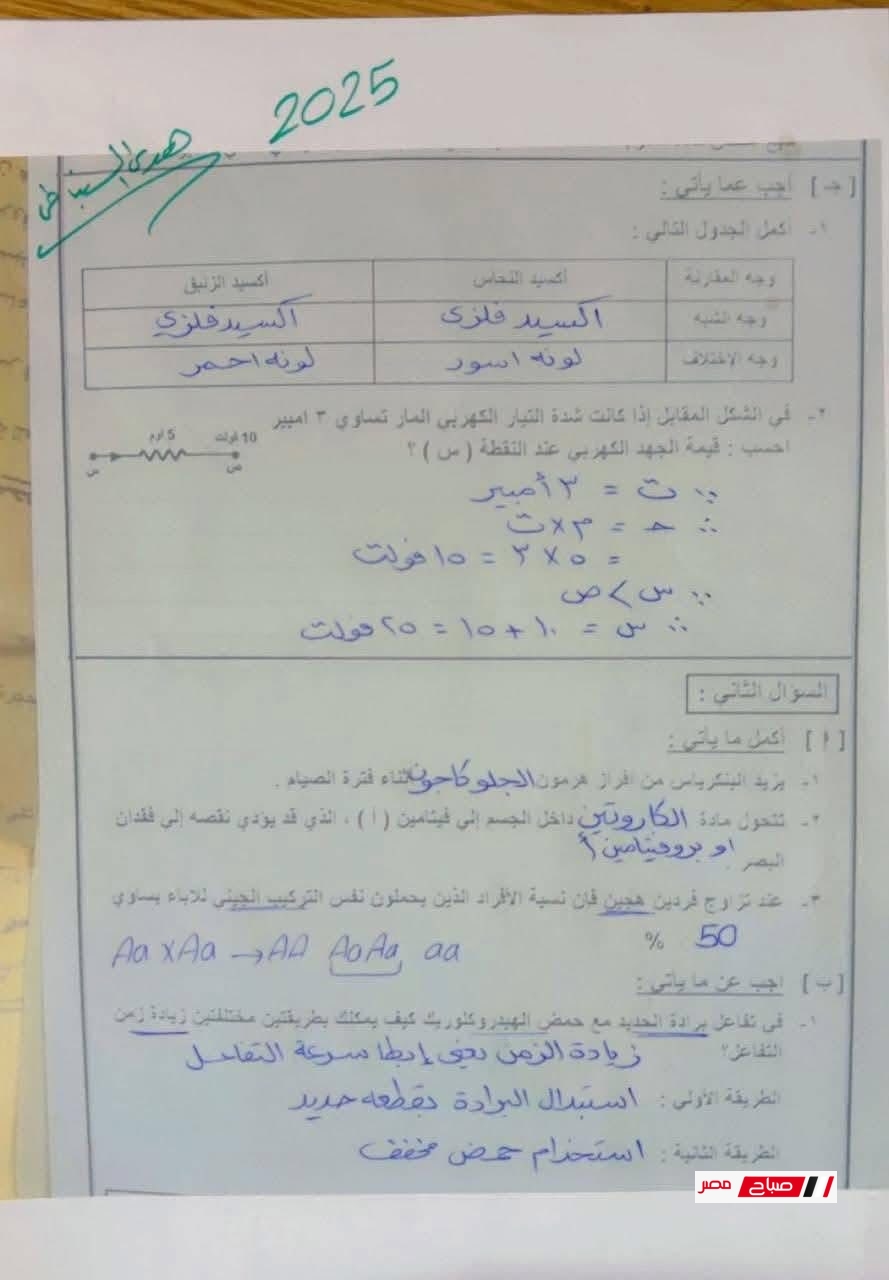 2025
هدى السنباطى
[ جـ ] أجب عما يأتي :
١- أكمل الجدول التالي :
وجه المقارنة أكسيد النحاس أكسيد الزئبق
وجه الشبه اكسيد فلزى اكسيد فلزي
وجه الاختلاف لونه اسود لونه احمر
٢- في الشكل المقابل إذا كانت شدة التيار الكهربي المار تساوي ٣ امبير
احسب : قيمة الجهد الكهربي عند النقطة ( س ) ؟
5 أوم 10 فولت
س ص
∵ ت = ٣ أمبير
∴ جـ = م × ت
= ٥ × ٣ = ١٥ فولت
∵ س > ص
∴ س = ١٠ + ١٥ = ٢٥ فولت
السؤال الثاني :
[ أ ] أكمل ما يأتي :
١- يزيد البنكرياس من افراز هرمون الجلوكاجون اثناء فترة الصيام .
٢- تتحول مادة الكاروتين داخل الجسم إلي فيتامين ( أ ) ، الذي قد يؤدي نقصه إلي فقدان
البصر . او بروفيتامين أ
٣- عند تزاوج فردين هجين فإن نسبة الأفراد الذين يحملون نفس التركيب الجيني للاباء يساوي
50 %
Aa x Aa → AA Aa Aa aa
[ ب ] اجب عن ما يأتي :
١- في تفاعل برادة الحديد مع حمض الهيدروكلوريك كيف يمكنك بطريقتين مختلفتين زيادة زمن
التفاعل؟ زيادة الزمن يعنى إبطا سرعة التفاعل
الطريقة الأولي : استبدال البرادة بقطعه حديد
الطريقة الثانية : استخدام حمض مخفف
صباح مصر